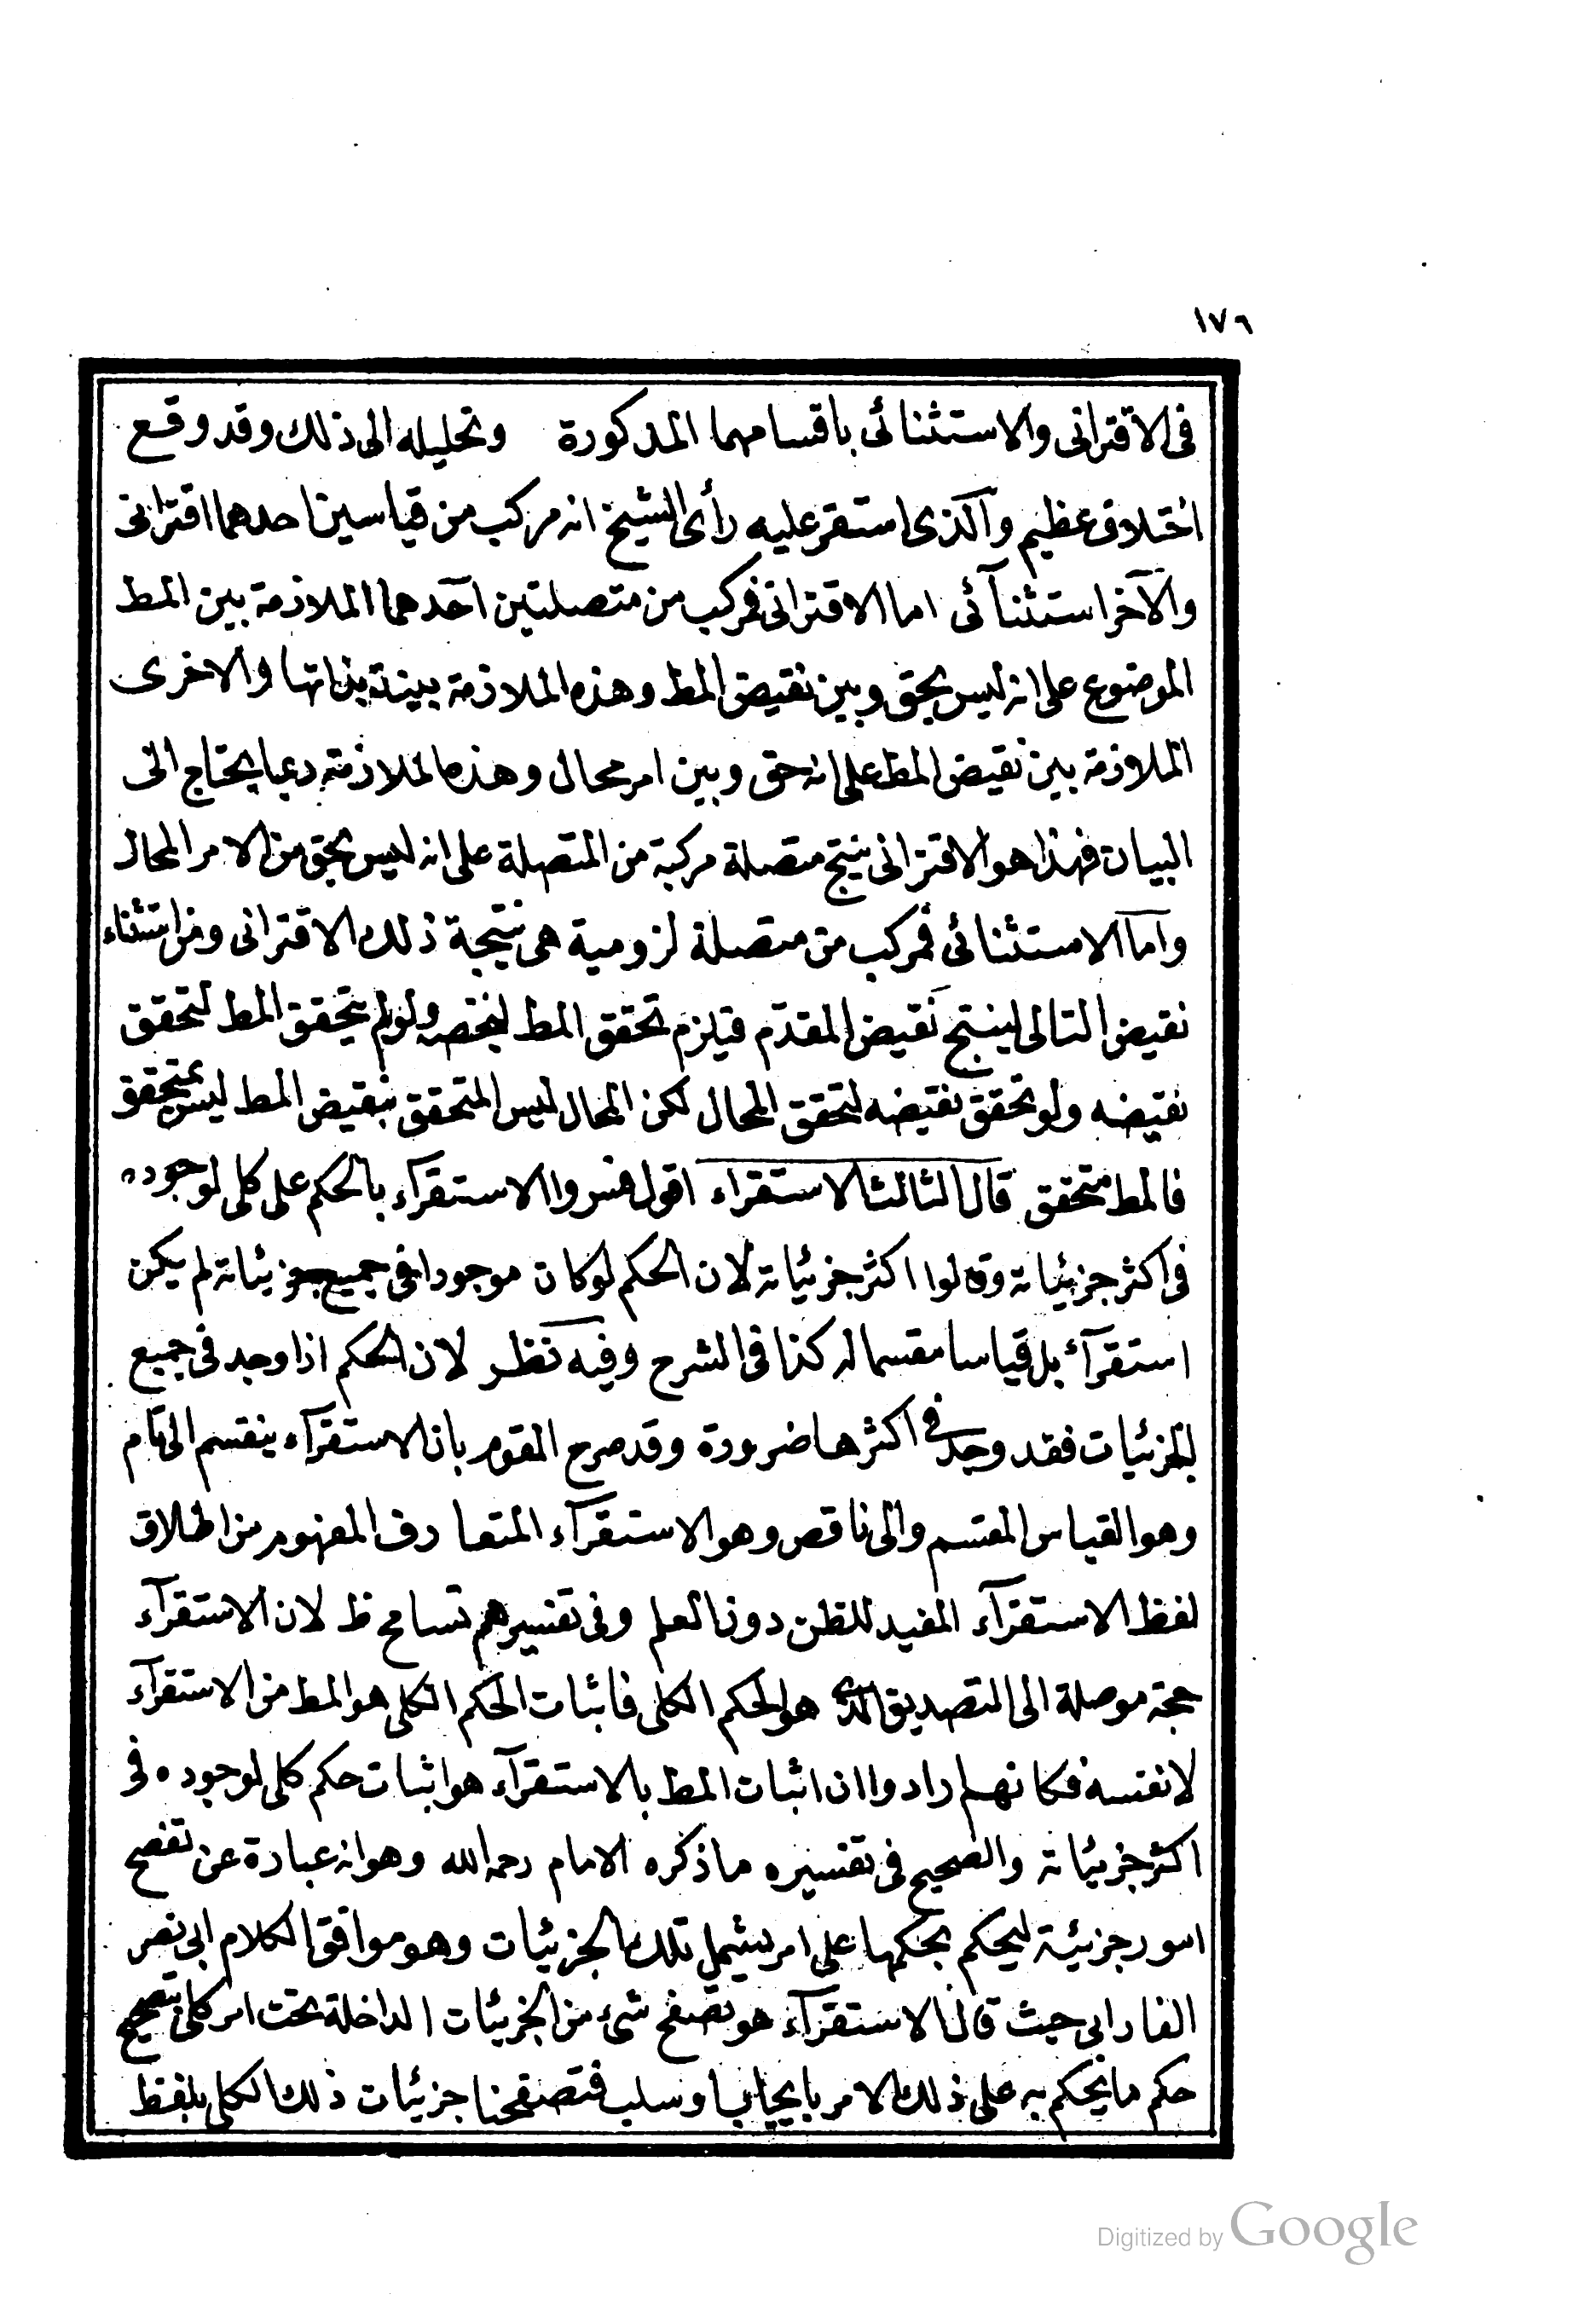 ١٧٦
فى الاقترانى والاستثنائى باقسامهما المذكورة وتحليله الى ذلك وقد وقع
اختلاف عظيم والذى استقر عليه رأى الشيخ انه مركب من قياسين احدهما اقترانى
والآخر استثنآئى اما الاقترانى فمركب من متصلتين احدهما الملازمة بين المط
الموضوع على انه ليس بحق وبين نقيض المط وهذه الملازمة بينة بذاتها والاخرى
الملازمة بين نقيض المط على انه حق وبين امر محال وهذه الملازمة ربما يحتاج الى
البيان فهذا هو الاقترانى ينتج متصلة مركبة من المتصلة على انه ليس بحق من الامر المحال
واما الاستثنائى فمركب من متصلة لزومية هى نتيجة ذلك الاقترانى ومن استثناء
نقيض التالى لينتج نقيض المقدم فيلزم تحقق المط ولو لم يتحقق المط لتحقق
نقيضه ولو تحقق نقيضه لتحقق المحال لكن المحال ليس المتحقق فنقيض المط ليس بمتحقق
فالمط متحقق قال الثالث الاستقراء اقول فسروا الاستقرآء بالحكم على كلى لوجوده
فى اكثر جزئياته وقالوا اكثر جزئياته لان الحكم لو كان موجودا فى جميع جزئياته لم يكن
استقرآء بل قياسا مقسما له كذا فى الشرح وفيه نظر لان الحكم اذا وجد فى جميع
الجزئيات فقد وجد فى اكثرها ضرورة وقد صرح القوم بان الاستقرآء ينقسم الى تام
وهو القياس المقسم والى ناقص وهو الاستقرآء المتعارف المفهوم من اطلاق
لفظ الاستقرآء المفيد للظن دون العلم وفى تفسيرهم تسامح ظ لان الاستقرآء
حجة موصلة الى التصديق الذى هو الحكم الكلى فاثبات الحكم الكلى هو المط من الاستقرآء
لا نفسه فكانهم ارادوا ان اثبات المط بالاستقرآء هو اثبات حكم كلى لوجوده فى
اكثر جزئياته والصحيح فى تفسيره ما ذكره الامام رحمه الله وهو انه عبارة عن تفصح
امور جزئية ليحكم بحكمها على امر يشمل تلك الجزئيات وهو موافق الكلام ابى نصر
الفارابى حيث قال الاستقرآء هو تصفح شىء من الجزئيات الداخلة تحت امر كلى
حكم ما يحكم به على ذلك الامر بايجاب او سلب فتصفحنا جزئيات ذلك الكلى بلفظ
Digitized by Google